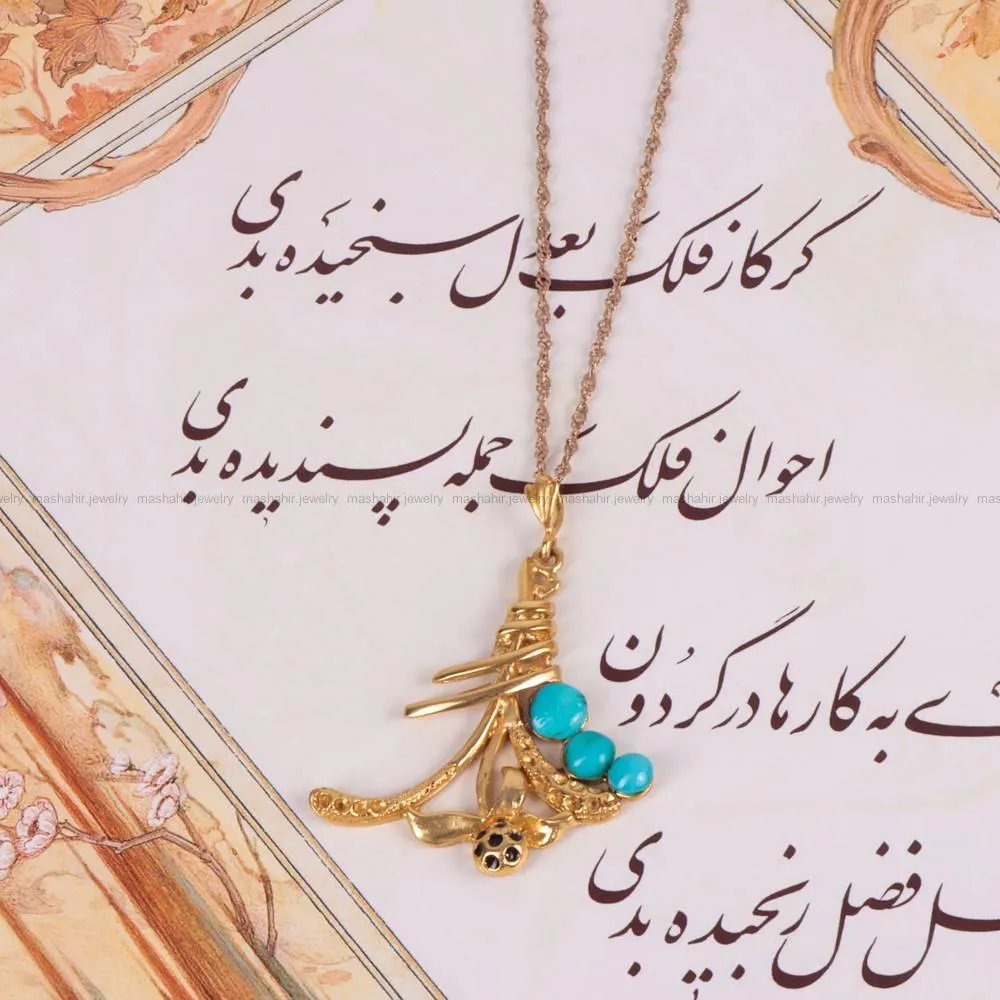 گر کار فلک بعدل سنجیده بدی
احوال فلک جمله پسندیده بدی
mashahir.jewelry mashahir.jewelry mashahir.jewelry mashahir.jewelry mashahir.jewelry mashahir.jewelry mashahir.jewelry mashahir.jewelry
به کارها در گردون
فضل رنجیده بدی